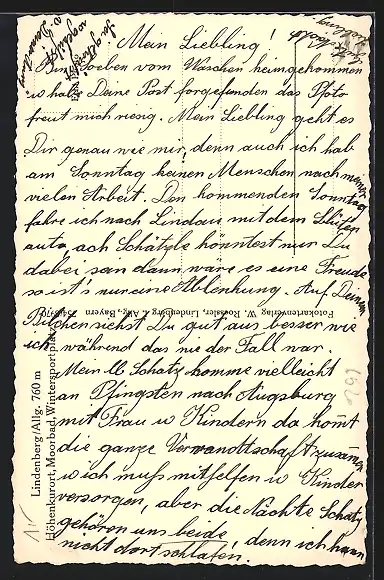 Mein Liebling!
Bin soeben vom Waschen heimgekommen
u habe Deine Post vorgefunden das
freut mich riesig. Mein Liebling geht es
Dir genau wie mir, denn auch ich hab
am Sonntag keinen Menschen nach meiner
vielen Arbeit. Den kommenden Sonntag
fahre ich nach Lindau mit dem
auto, ach Schätzle könntest nur Du
dabei sein dann wäre es eine Freude
so ist's nur eine Ablenkung. Auf Deinem
Bildchen siehst Du gut aus besser wie
ich während das nie der Fall war.
Mein lb. Schatz komme vielleicht
an Pfingsten nach Augsburg
mit Frau u Kindern da kom̄t
die ganze Verwandtschaft zusammen
u ich muß mithelfen u Kinder
versorgen, aber die Nächte Schatz
gehören uns beide, denn ich kann
nicht dort schlafen.
Lindenberg/Allg. 760 m
Höhenkurort, Moorbad, Wintersportplatz
Fotokartenverlag W. Roessler, Lindenberg i. Allg. Bayern